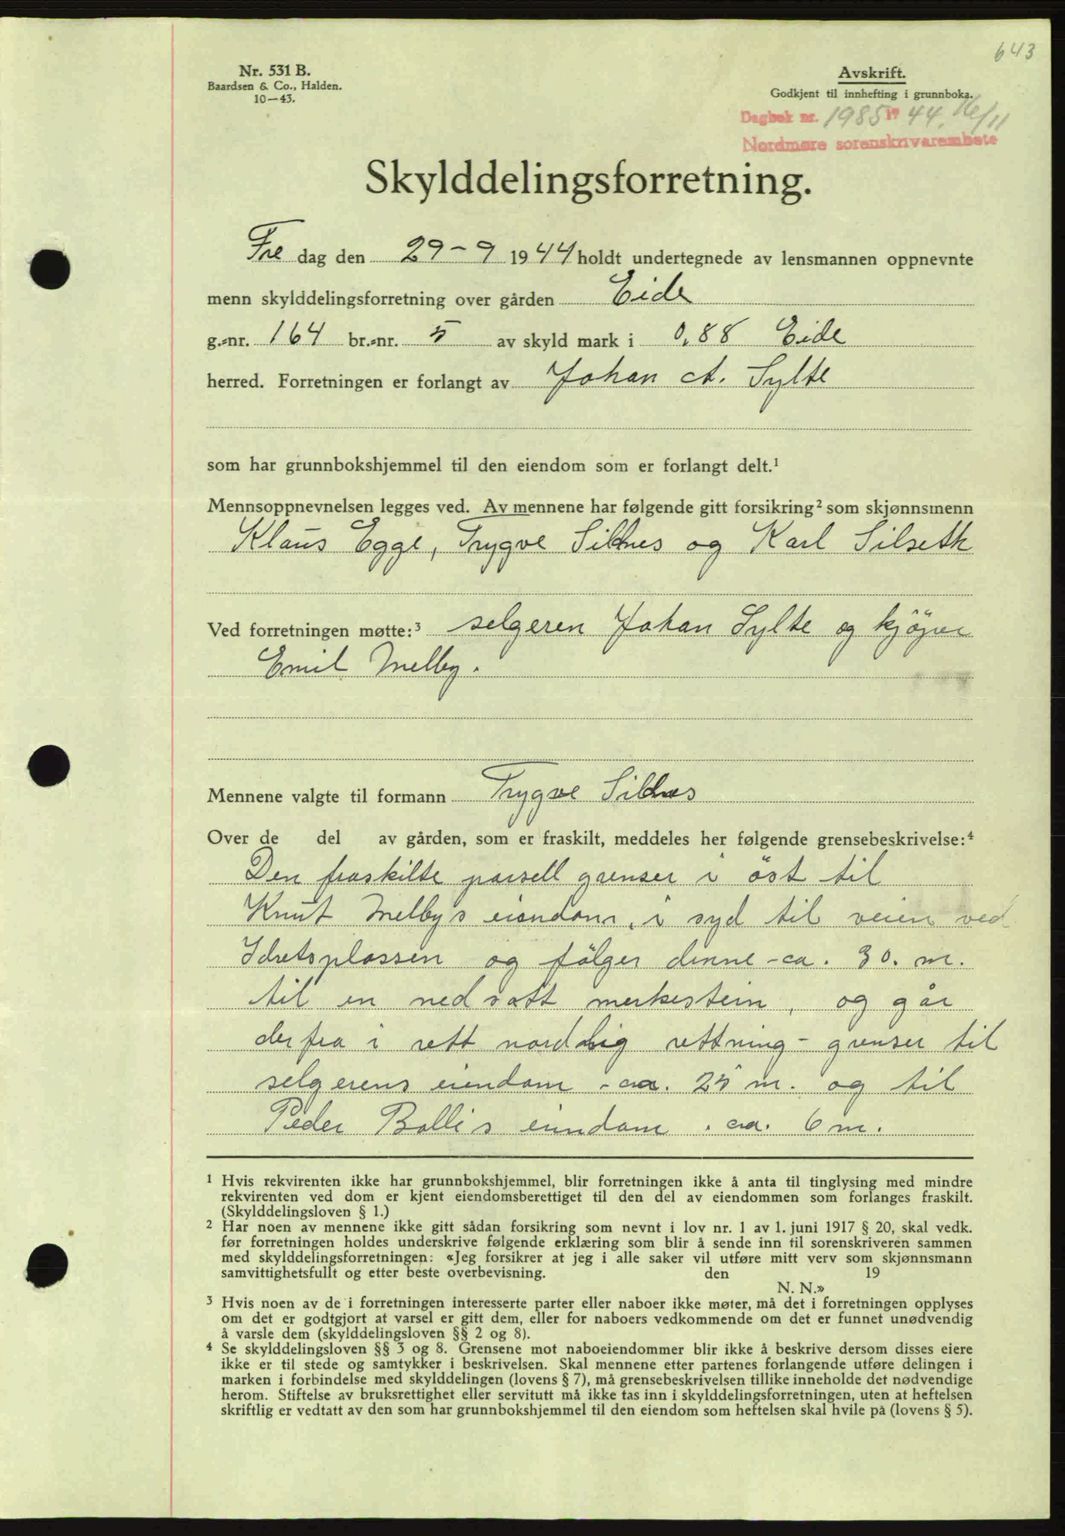 643
Nr. 531 B.
Baardsen & Co., Halden.
10—43.
Avskrift.
Godkjent til innhefting i grunnboka.
Dagbok nr. 1985 19 44. 16/11
Nordmøre sorenskrivarembete
Skylddelingsforretning.
Fre dag den 29 - 9 1944 holdt undertegnede av lensmannen oppnevnte
menn skylddelingsforretning over gården Eide
g.-nr. 164 br.-nr. 5 av skyld mark i 0,88 Eide
herred. Forretningen er forlangt av Johan A. Sylte
som har grunnbokshjemmel til den eiendom som er forlangt delt.¹
Mennsoppnevnelsen legges ved. Av mennene har følgende gitt forsikring² som skjønnsmenn
Klaus Egge, Trygve Sildnes og Karl Silseth
Ved forretningen møtte:³ selgeren Johan Sylte og kjöper
Emil Melby.
Mennene valgte til formann Trygve Sildnes
Over de del av gården, som er fraskilt, meddeles her følgende grensebeskrivelse:⁴
Den fraskilte parsell grenser i öst til
Knut Melbys eiendom, i syd til veien ved
Idretsplassen og fölger denne - ca. 30. m.
til en nedsatt merkestein, og går
derfra i rett nordlig rettning - grenser til
selgerens eiendom - ca. 25 m. og til
Peder Bollis eiendom . ca. 6 m.
¹ Hvis rekvirenten ikke har grunnbokshjemmel, blir forretningen ikke å anta til tinglysing med mindre
rekvirenten ved dom er kjent eiendomsberettiget til den del av eiendommen som forlanges fraskilt.
(Skylddelingsloven § 1.)
² Har noen av mennene ikke gitt sådan forsikring som nevnt i lov nr. 1 av 1. juni 1917 § 20, skal vedk.
før forretningen holdes underskrive følgende erklæring som blir å sende inn til sorenskriveren sammen
med skylddelingsforretningen: «Jeg forsikrer at jeg i alle saker vil utføre mitt verv som skjønnsmann
samvittighetsfullt og etter beste overbevisning. den 19
N. N.»
³ Hvis noen av de i forretningen interesserte parter eller naboer ikke møter, må det i forretningen opplyses
om det er godtgjort at varsel er gitt dem, eller for naboers vedkommende om det er funnet unødvendig
å varsle dem (skylddelingsloven §§ 2 og 8).
⁴ Se skylddelingsloven §§ 3 og 8. Grensene mot naboeiendommer blir ikke å beskrive dersom disses eiere
ikke er til stede og samtykker i beskrivelsen. Skal mennene etter partenes forlangende utføre delingen i
marken i forbindelse med skylddelingen (lovens § 7), må grensebeskrivelsen tillike inneholde det nødvendige
herom. Stiftelse av bruksrettighet eller servitutt må ikke tas inn i skylddelingsforretningen, uten at heftelsen
skriftlig er vedtatt av den som har grunnbokshjemmel til den eiendom som heftelsen skal hvile på (lovens § 5).